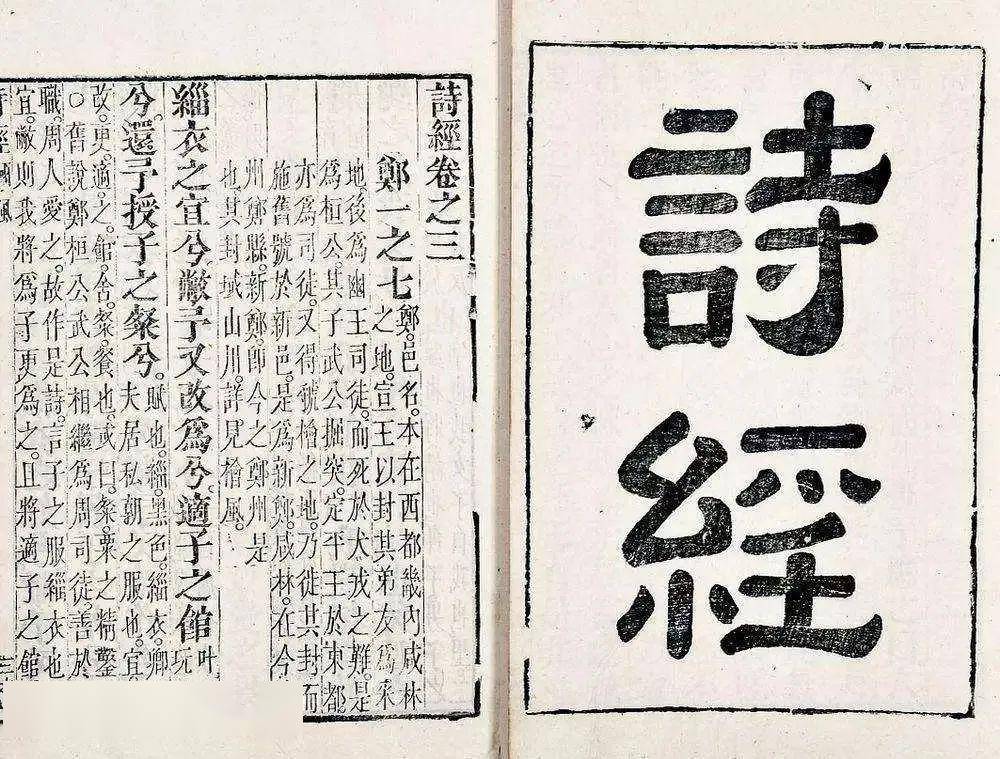 詩
經
詩經卷之三
鄭一之七鄭。邑名。本在西都畿內咸林
之地。宣王以封其弟友為采
地。後為幽王司徒。而死於犬戎之難。是
為桓公。其子武公掘突。定平王於東都。
亦為司徒。又得虢檜之地。乃徙其封。而
施舊號於新邑。是為新鄭。咸林。在今
州鄭縣。新鄭。即今之鄭州。是
也。其封域山川。詳見檜風。
緇衣之宜兮敝予又改為兮。適子之館叶
玩
兮。還予授子之粲兮。賦也。緇。黑色。緇衣。卿
夫居私朝之服也。宜
改。更。適。之。館。舍。粲。餐也。或曰。粲。粟之精鑿
○舊說。鄭桓公武公相繼為周司徒。善於
職。周人愛之。故作是詩。言子之服緇衣也
宜。敝則我將為子更為之。且將適子之館